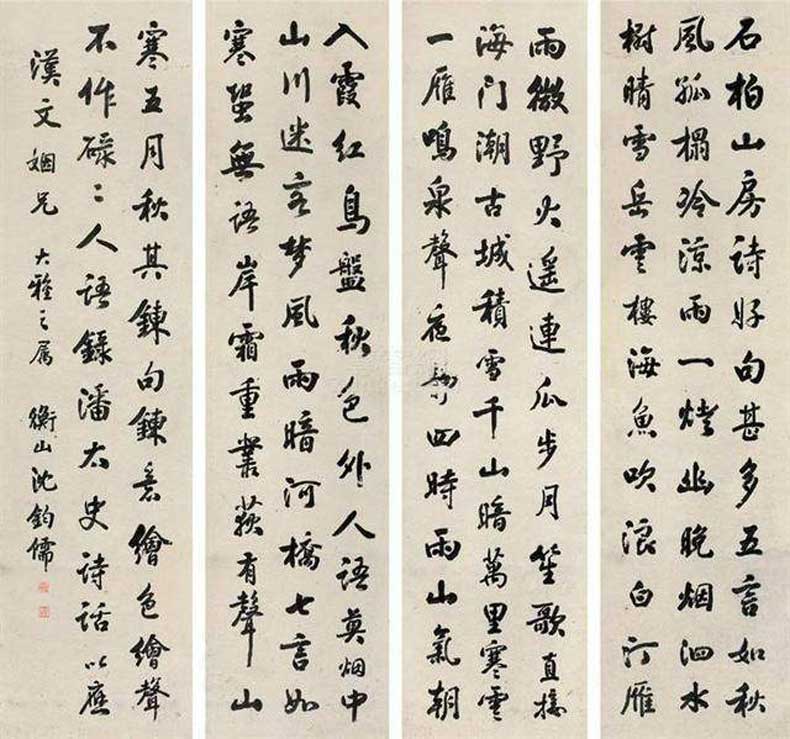 石柏山房詩好句甚多五言如秋
風孤榻冷涼雨一燈幽晚烟泗水
樹晴雪岳雲樓海魚吹浪白汀雁
雨微野火遥連瓜步月笙歌直接
海门潮古城積雪千山暗萬里寒雲
一雁鳴泉聲夜静四時雨山氣朝
入霞红鳥盤秋色外人語莫烟中
山川迷客梦風雨暗河橋七言如
寒蛩無語岸霜重叢荻有聲山
寒五月秋其鍊句鍊意繪色繪聲
不作碌〻人語録潘太史詩話以應
漢文姻兄 大雅之属 衡山沈鈞儒